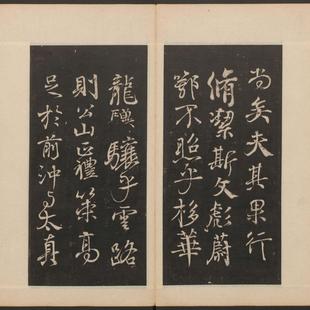 尚矣夫其果行
脩絜斯文彪蔚
鄂不照乎移華
龍驥驤乎雲路
則公山正禮策高
足於前沖與太真